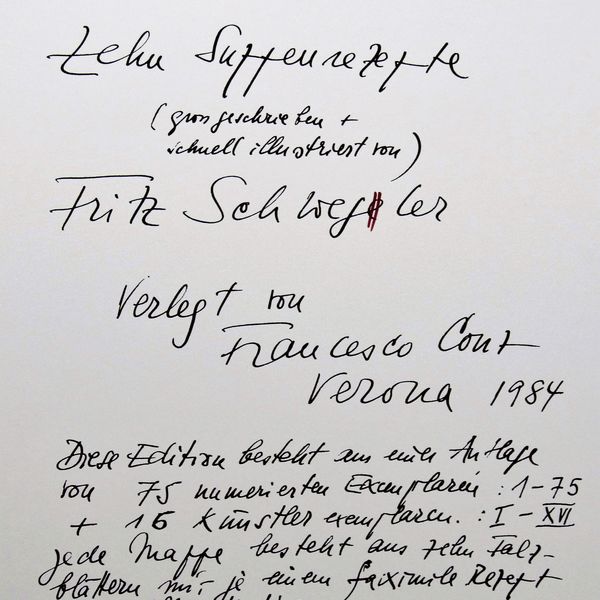 Zehn Suppenrezepte
(grosgeschrieben +
schnell illustriert von)
Fritz Schwegler
Verlegt von
Francesco Conz
Verona 1984
Diese Edition besteht aus einer Auflage
von 75 numerierten Exemplaren : 1-75
+ 16 Künstlerexemplaren. : I - XVI
jede Mappe besteht aus zehn Falz-
blättern mit je einem faximile Rezept